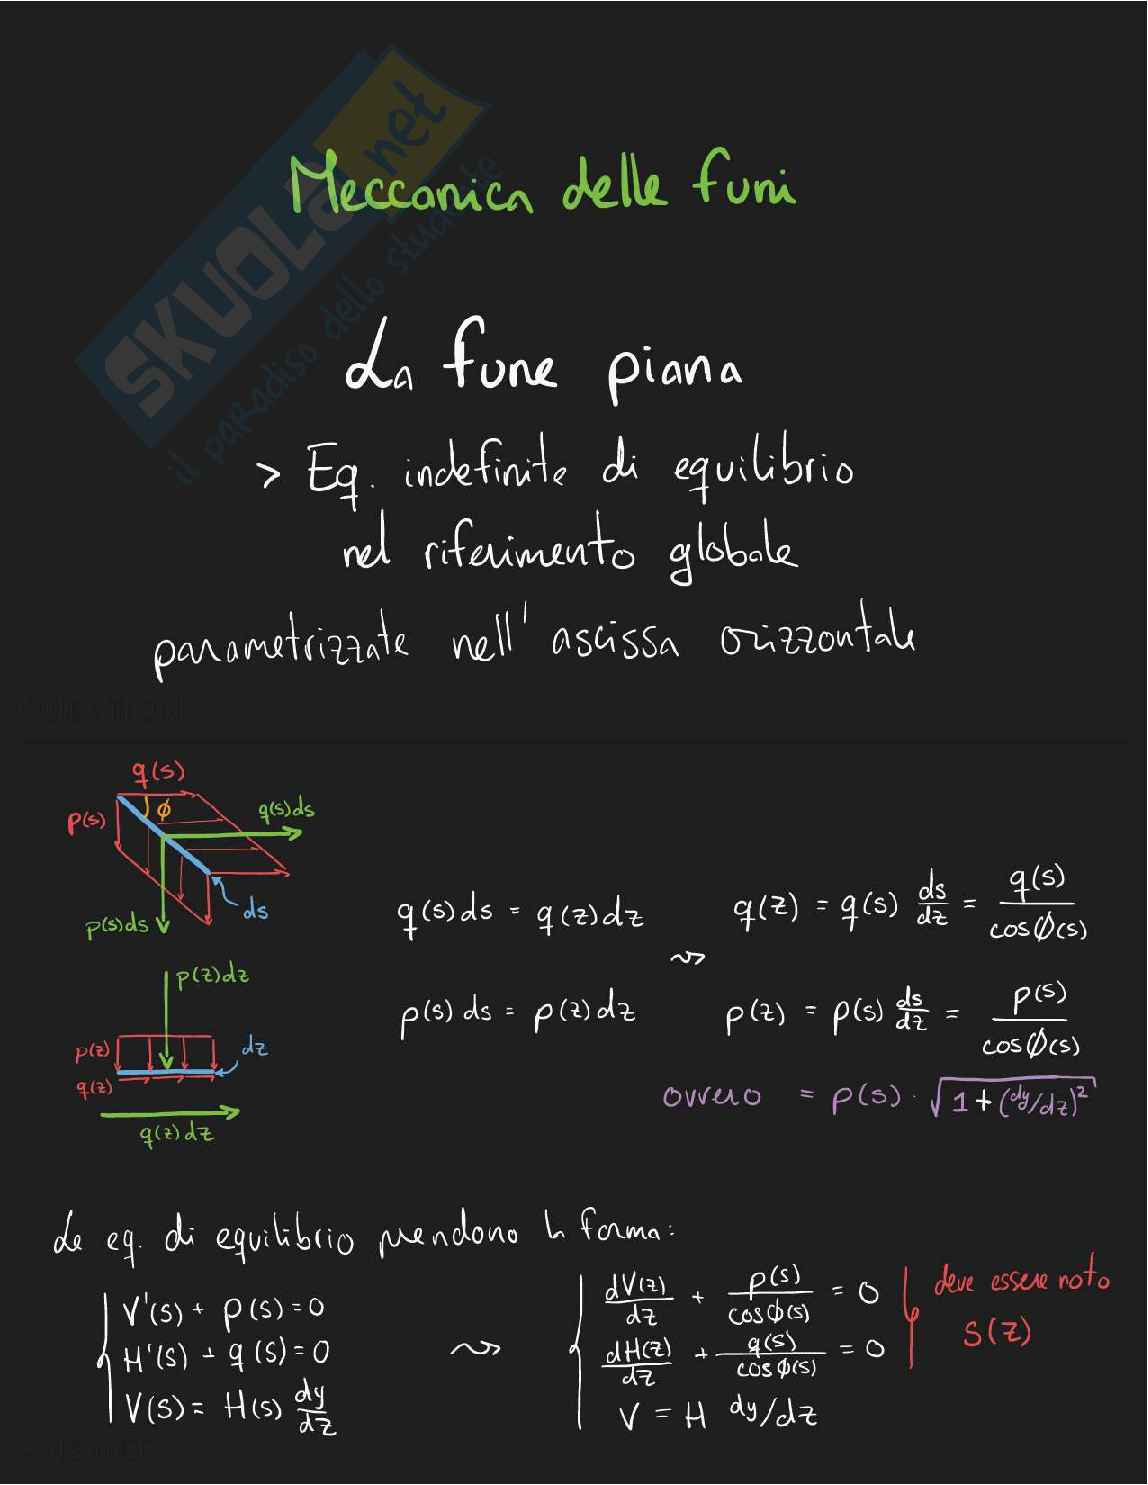 Meccanica delle funi
SKUOLA.net
il paradiso dello studente
La fune piana
> Eq. indefinite di equilibrio
nel riferimento globale
parametrizzate nell'ascissa orizzontale
q(s)
p(s)
ϕ
q(s)ds
p(s)ds
ds
q(s)ds = q(z)dz ⇝ q(z) = q(s) ds/dz = q(s)/cosϕ(s)
p(s)ds = p(z)dz p(z) = p(s) ds/dz = p(s)/cosϕ(s)
ovvero = p(s) · √(1 + (dy/dz)²)
p(z)dz
p(z)
dz
q(z)
q(z)dz
Le eq. di equilibrio prendono la forma:
V'(s) + p(s) = 0
H'(s) + q(s) = 0
V(s) = H(s) dy/dz
⇝
dV(z)/dz + p(s)/cosϕ(s) = 0
dH(z)/dz + q(s)/cosϕ(s) = 0
V = H dy/dz
deve essere noto
s(z)